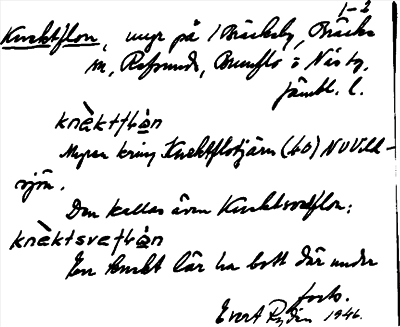 1-2
Knektflon, myr på 1 Bräcksby, Bräcke
sn, Refsunds, Brunflo o Näs tg,
Jämtl. l.
knèktflo̱n
Myren kring Knektflotjärn (40) NV Väll-
sjön.
Den kallas även Knektsvedflon:
knèktsveflo̱n
En knekt lär ha bott där under
forts.
Evert Rydén 1946.